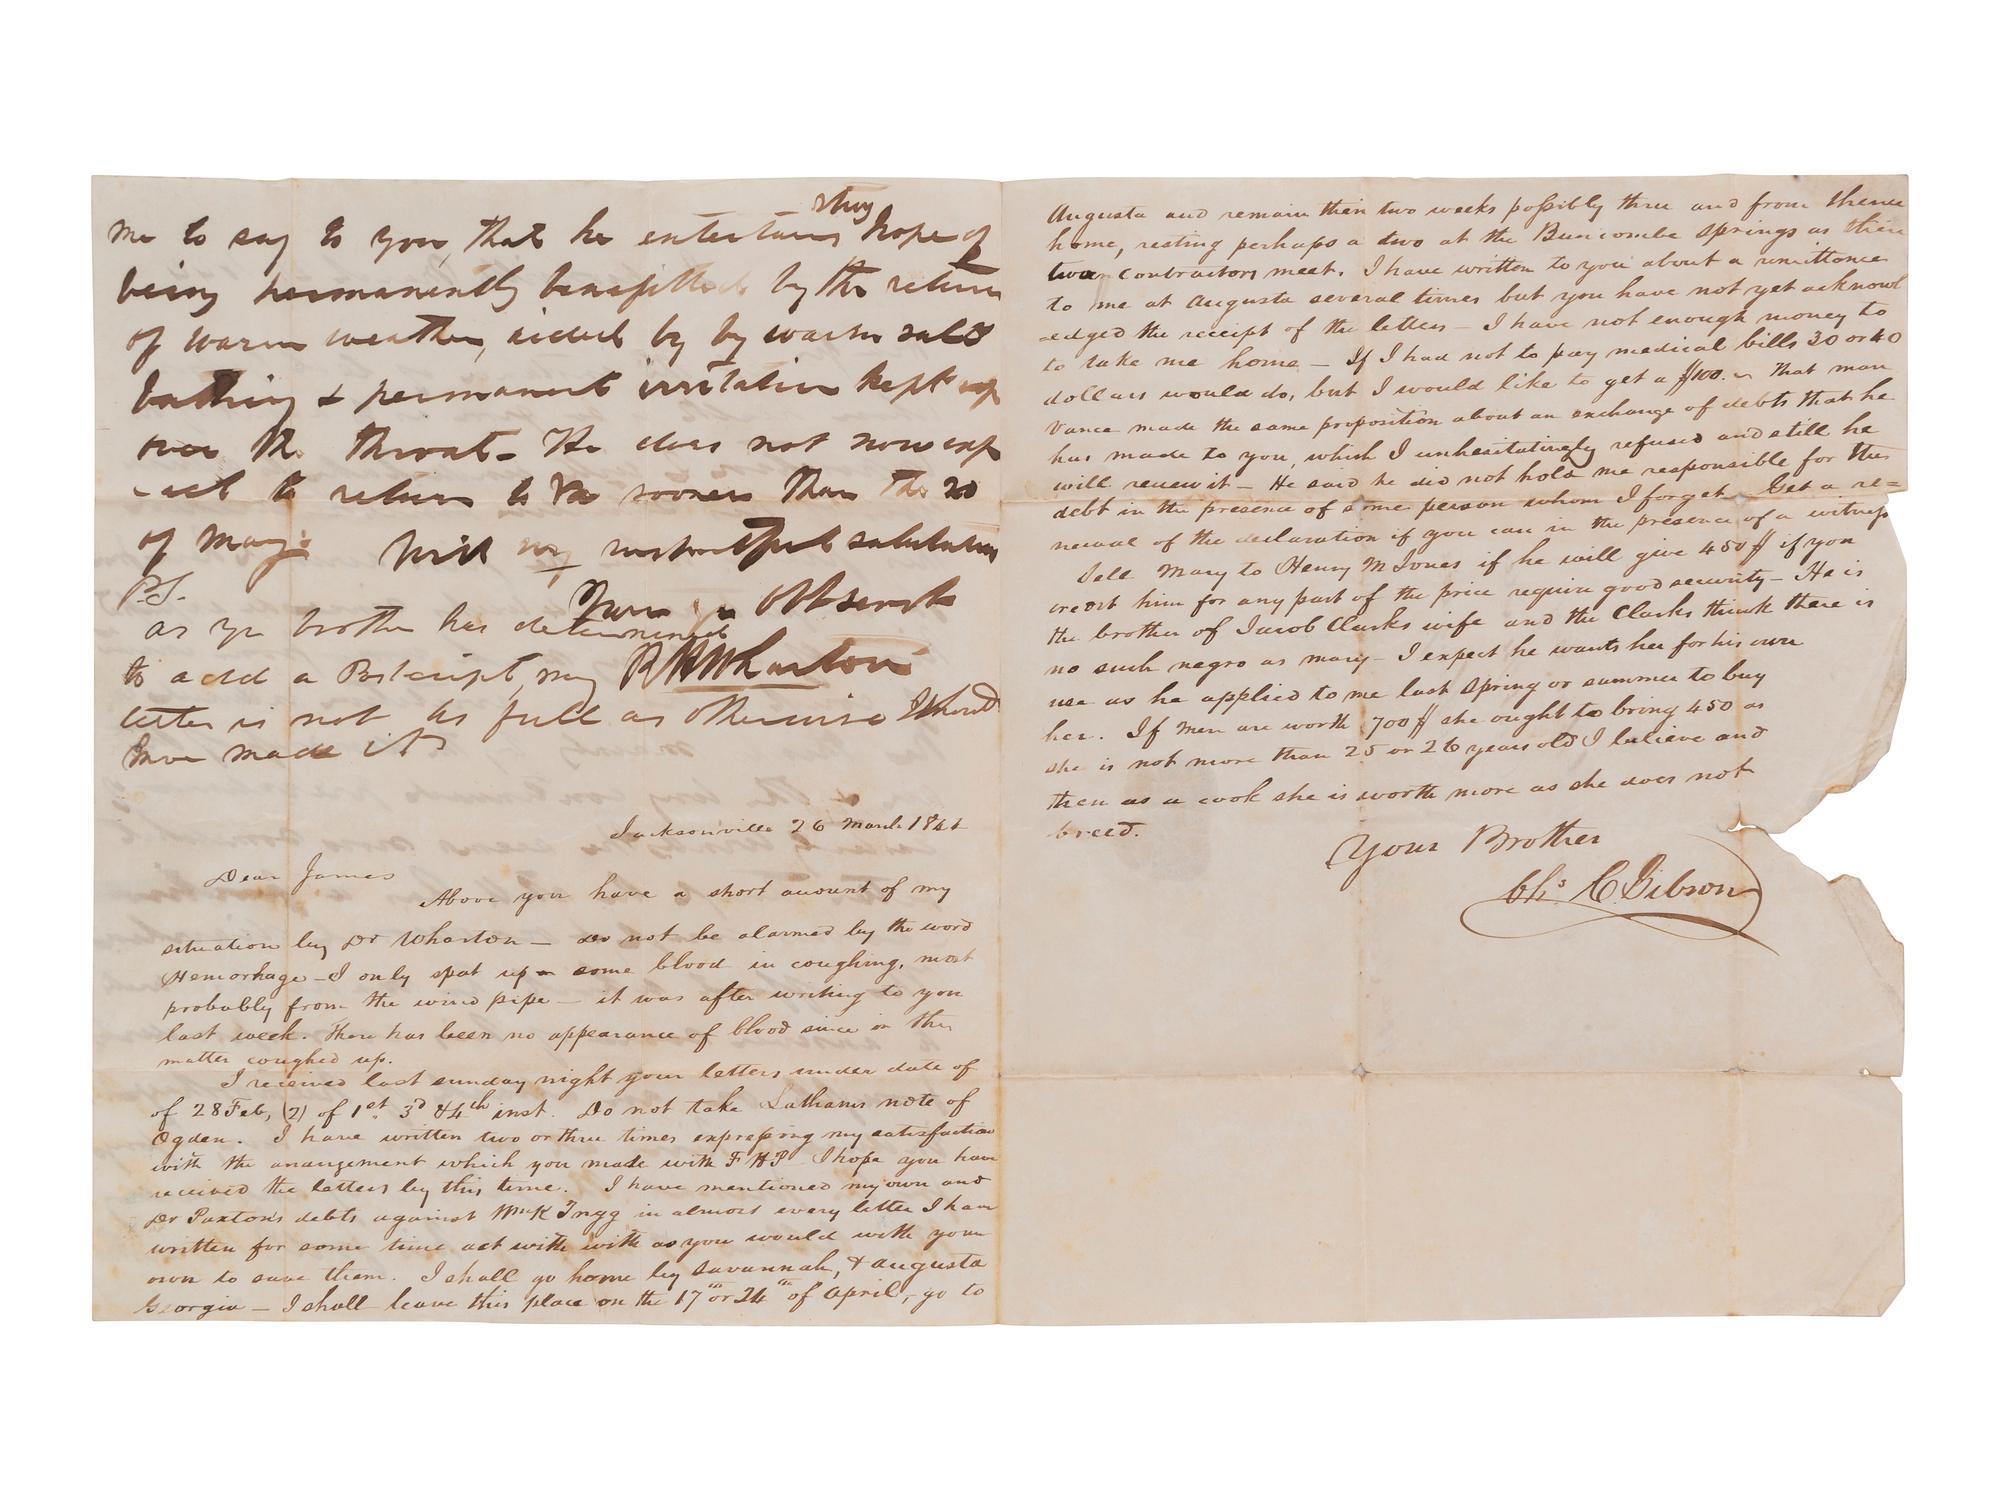 me to say to you, that he entertains strong hope of
being permanently benefitted by the return
of warm weather, aided by by warm salt
bathing & permanent irritation kept up
over the throat - He does not now exp
-ect to return to Va sooner than the 20
of May. With my respectful salutations
P.S. Yours Obt Servt
as yr brother has determined
to add a Postcript, my R H Wharton
letter is not as full as otherwise I should
have made it
Jacksonville 26 March 1844
Dear James
Above you have a short account of my
situation by Dr Wharton — do not be alarmed by the word
Hemorhage — I only spat up some blood in coughing, most
probably from the wind pipe — it was after writing to you
last week. There has been no appearance of blood since in the
matter coughed up.
I received last sunday night your letters under date of
of 28 Feb, (2) of 1st 3d & 4th inst. Do not take Lathams note of
Ogden. I have written two or three times expressing my satisfaction
with the arrangement which you made with F H P I hope you have
received the letters by this time. I have mentioned my own and
Dr Paxton's debts against in almost every letter I have
written for some time act with with as you would with your
own to save them. I shall go home by Savannah, & Augusta
Georgia — I shall leave this place on the 17th or 24th of April, go to
Augusta and remain then two weeks possibly three and from thence
home, resting perhaps a two at the Buncombe Springs as their
contractors meet. I have written to you about a remittance
to me at Augusta several times but you have not yet acknowl
edged the receipt of the letters — I have not enough money to
to take me home — If I had not to pay medical bills 30 or 40
dollars would do, but I would like to get a $100. That man
Vance made the same proposition about an exchange of debts that he
has made to you, which I unhesitatingly refused and still he
will renew it — He said he did not hold me responsible for the
debt in the presence of some person whom I forget. Get a re=
newal of the declaration if you can in the presence of a witness
Sell Mary to Henry M Jones if he will give 450$ if you
credit him for any part of the price require good security — He is
the brother of Jacob Clarks wife and the Clarks think there is
no such negro as mary — I expect he wants her for his own
use as he applied to me last spring or summer to buy
her. If men are worth 700$ she ought to bring 450 as
she is not more than 25 or 26 years old I believe and
then as a cook she is worth more as she does not
breed.
Your Brother
Chs C. Gibson